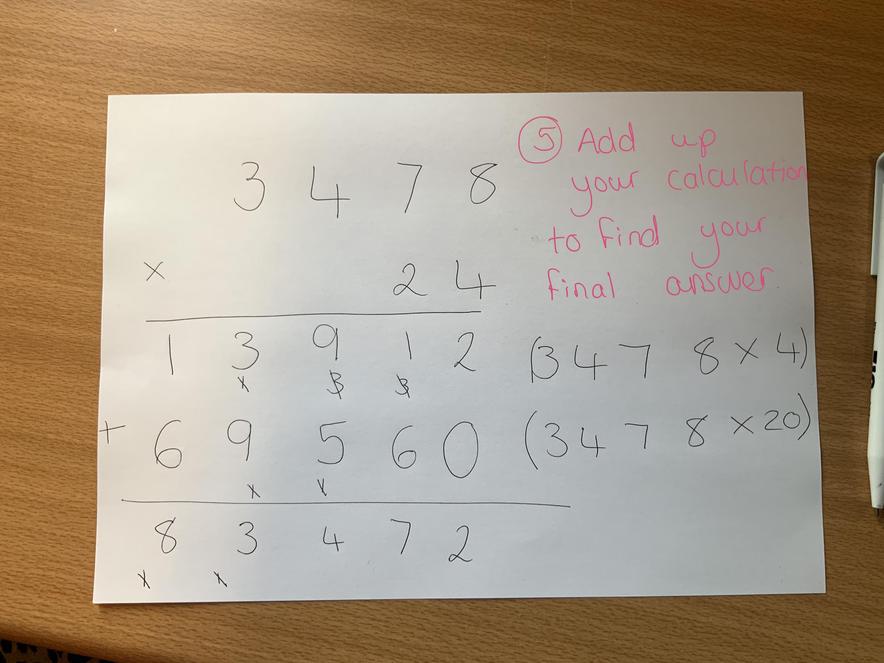 ⑤ Add up
your calculation
to find your
final answer
3 4 7 8
× 2 4
1 3 9 1 2 (3 4 7 8 × 4)
+ 6 9 5 6 0 (3 4 7 8 × 20)
8 3 4 7 2